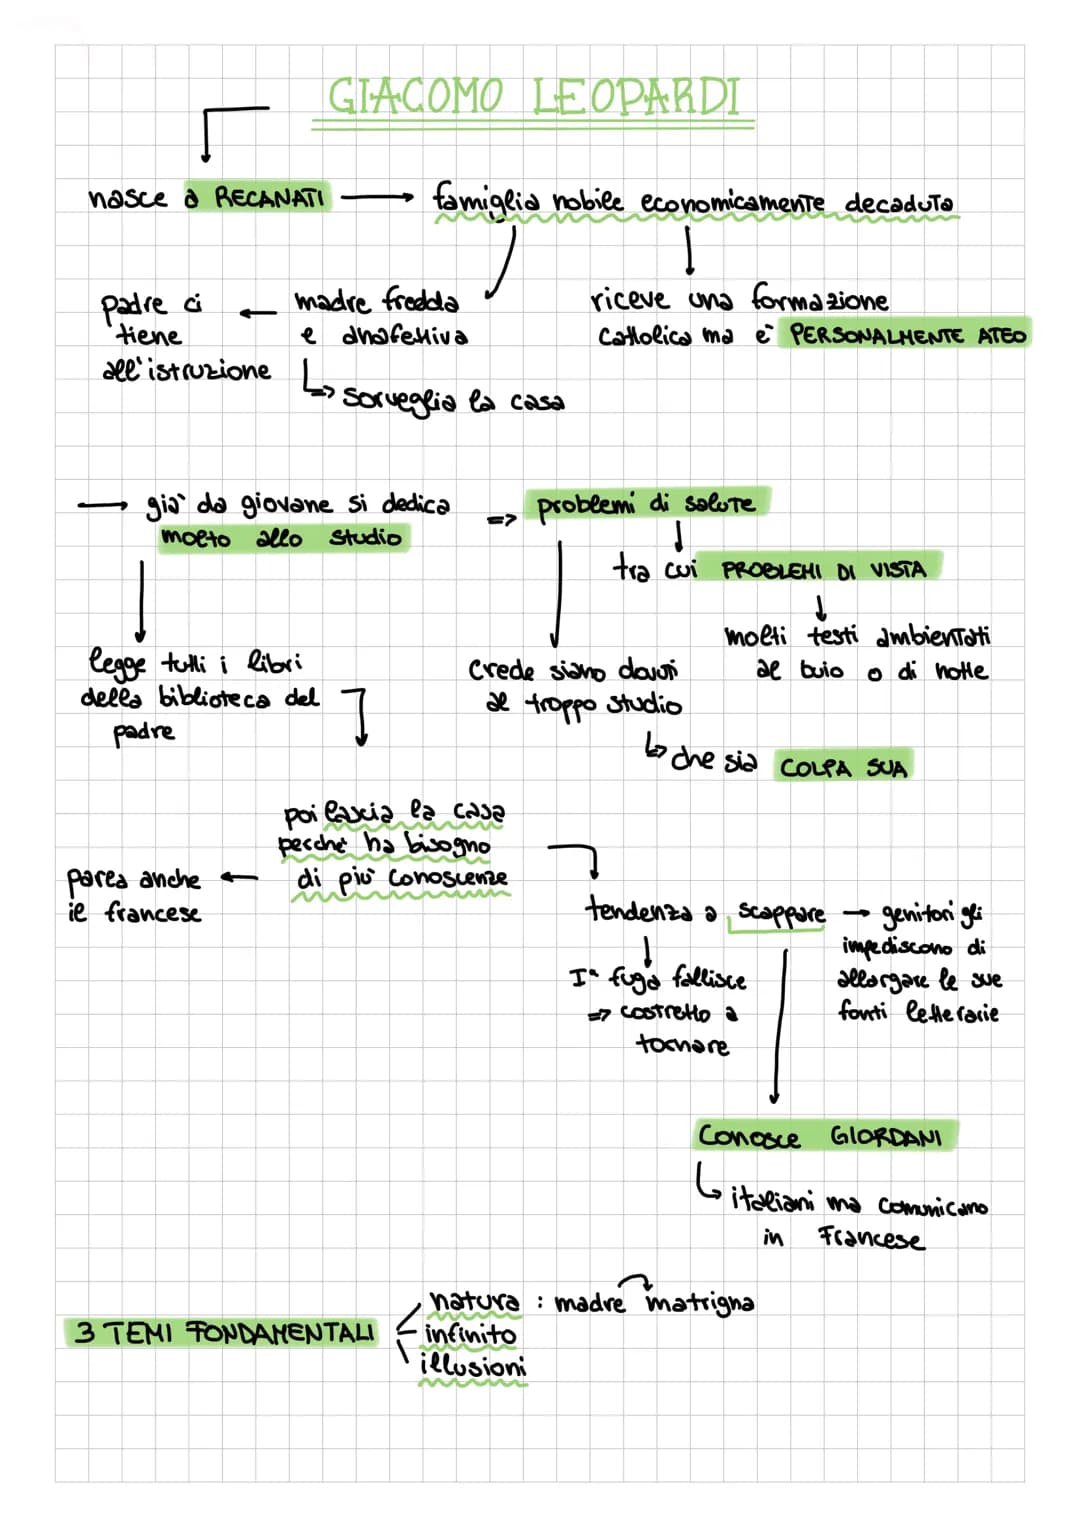 GIACOMO LEOPARDI
nasce a RECANATI
famiglia nobile economicamente decaduta
padre ci
tiene
all'istruzione
madre fredda
e anaffettiva
sorveglia la casa
riceve una formazione
Cattolica ma è PERSONALMENTE ATEO
già da giovane si dedica
molto allo studio
=> problemi di salute
tra cui PROBLEMI DI VISTA
molti testi ambientati
al buio o di notte
legge tutti i libri
della biblioteca del
padre
Crede siano dovuti
al troppo studio
che sia COLPA SUA
poi lascia la casa
perché ha bisogno
di più conoscenze
parla anche
il francese
tendenza a scappare
genitori gli
impediscono di
allargare le sue
fonti letterarie
Iª fuga fallisce
=> costretto a
tornare
Conosce GIORDANI
italiani ma comunicano
in Francese
3 TEMI FONDAMENTALI
natura : madre matrigna
infinito
illusioni